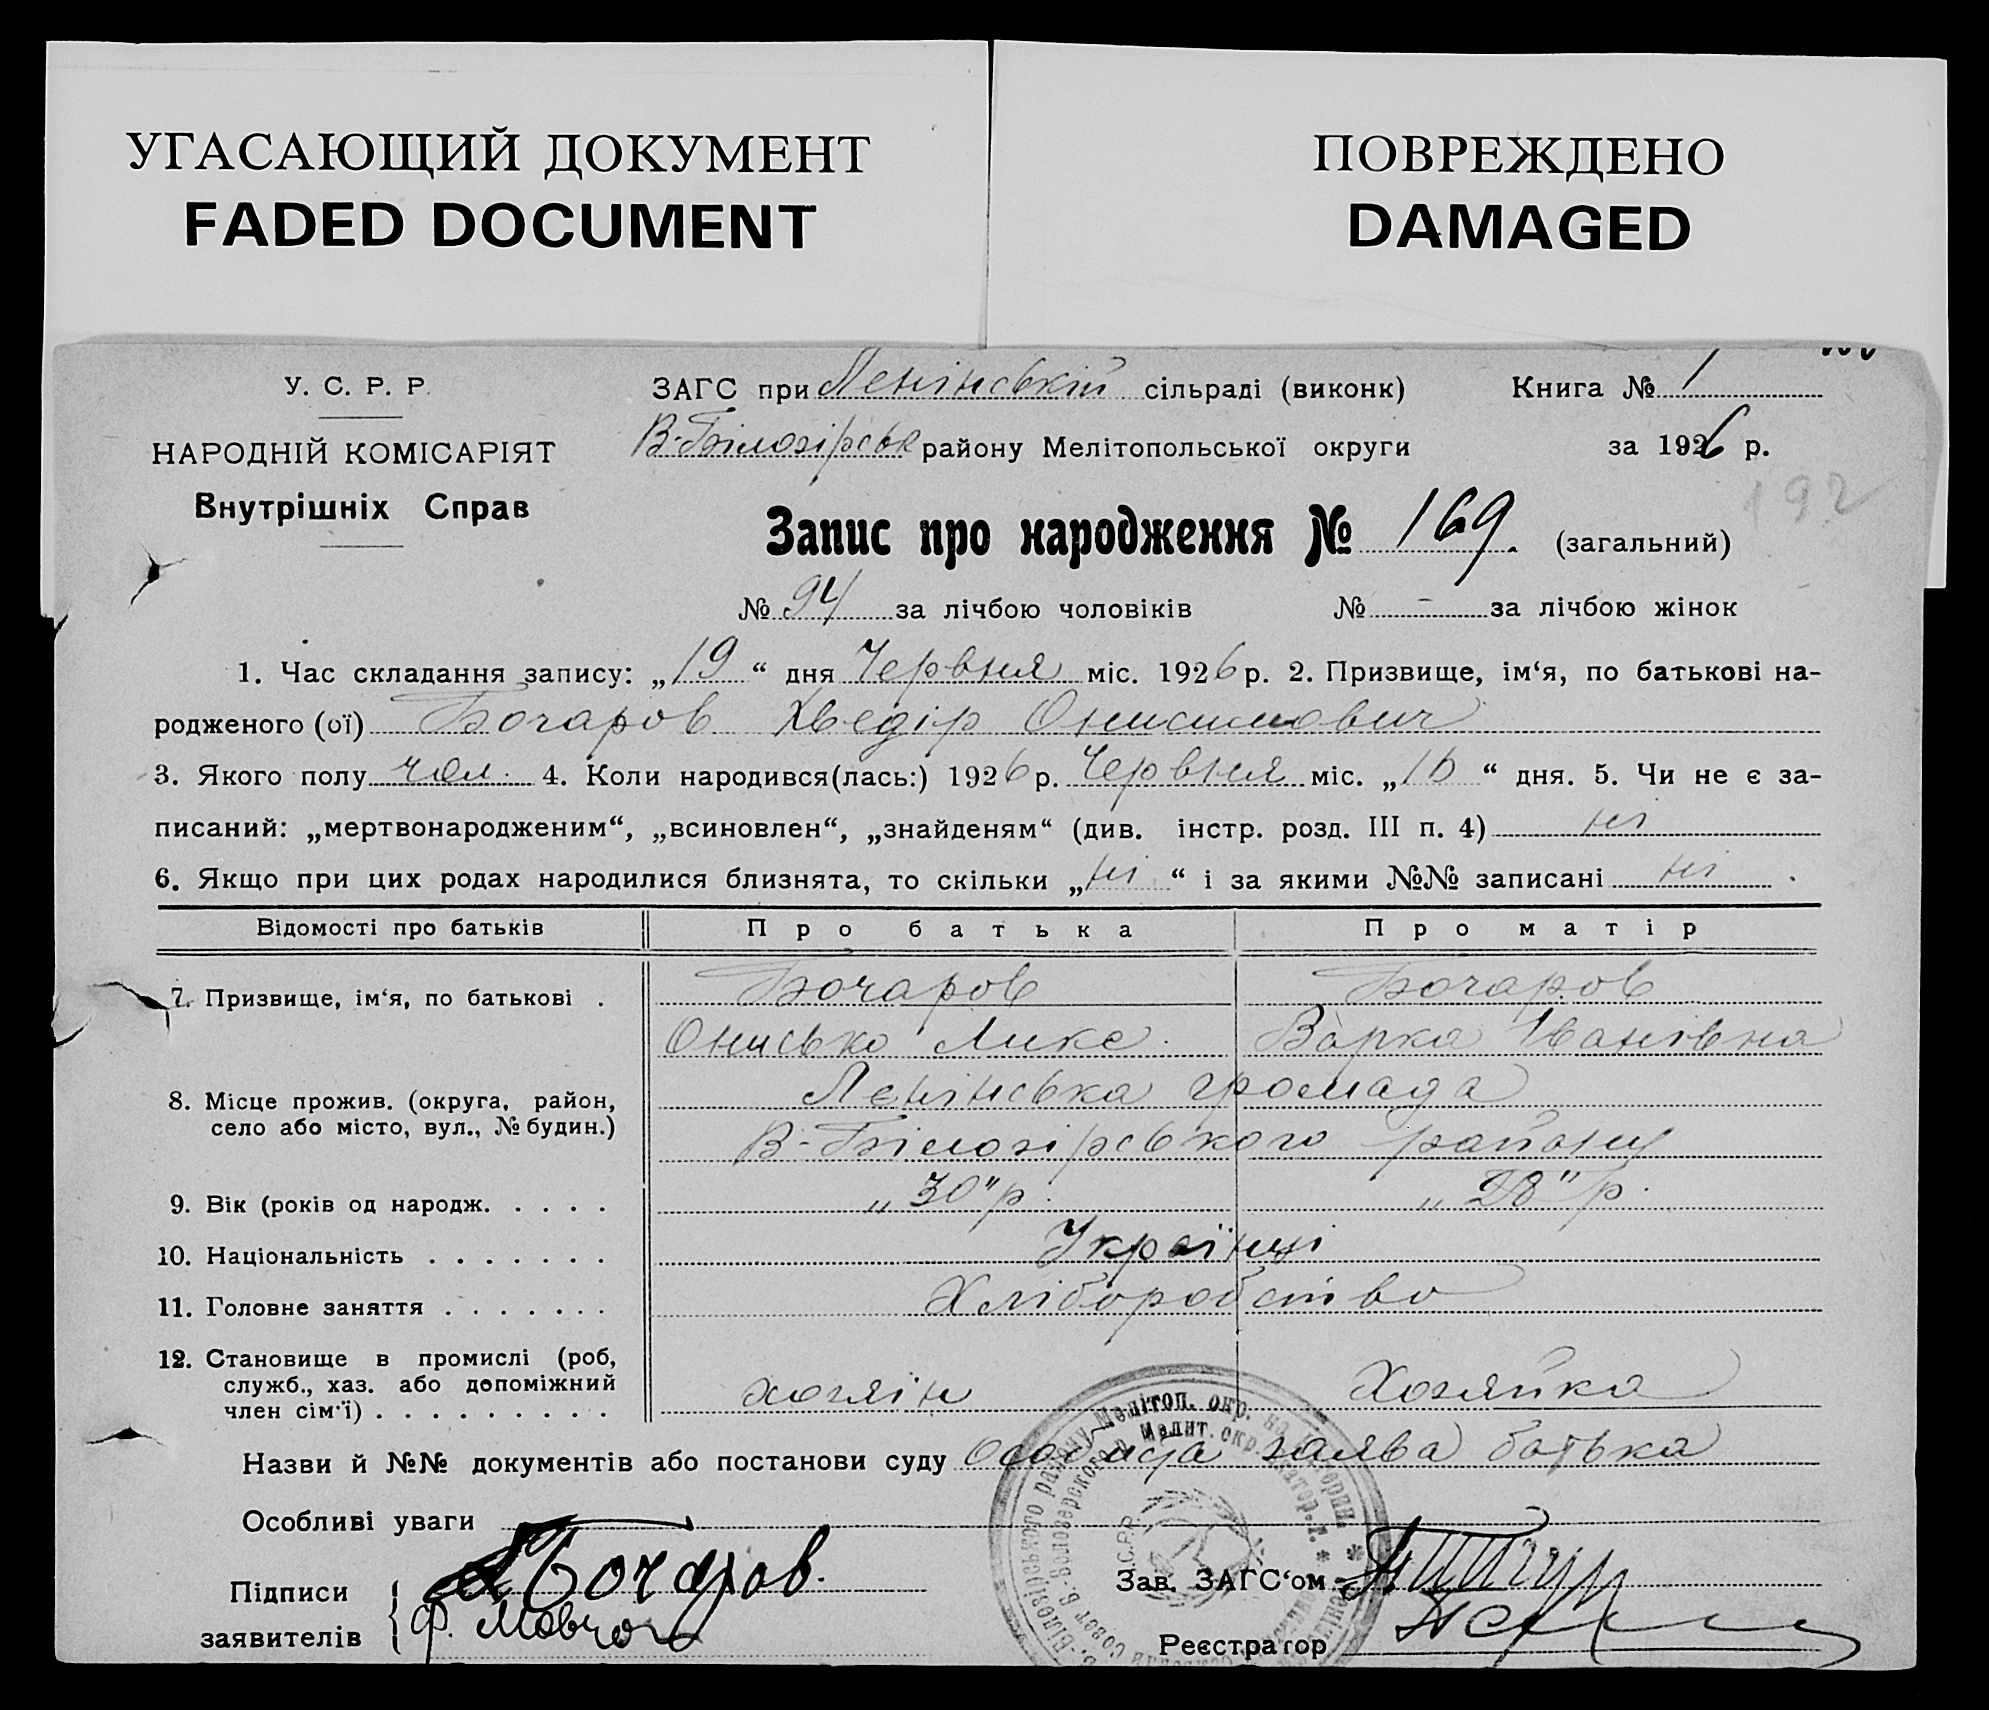 УГАСАЮЩИЙ ДОКУМЕНТ
FADED DOCUMENT
ПОВРЕЖДЕНО
DAMAGED
У. С. Р. Р.
НАРОДНІЙ КОМІСАРІЯТ
Внутрішніх Справ
ЗАГС при Ленінській сільраді (виконк) Книга № 1
В-Білозірськ району Мелітопольської округи за 1926 р.
192
Запис про народження № 169. (загальний)
№ 94 за лічбою чоловіків № - за лічбою жінок
1. Час складання запису: „19“ дня Червня міс. 1926 р. 2. Призвище, ім‘я, по батькові на-
родженого (ої) Бочаров Хведір Онисимович
3. Якого полу чол. 4. Коли народився(лась:) 1926 р. Червня міс. „16“ дня. 5. Чи не є за-
писаний: „мертвонародженим“, „всиновлен“, „знайденям“ (див. інстр. розд. III п. 4) ні
6. Якщо при цих родах народилися близнята, то скільки „ні“ і за якими №№ записані ні.
Відомості про батьків Про батька Про матір
7. Призвище, ім‘я, по батькові . Бочаров Бочаров
Онисько Микс. Варка Іванівна
8. Місце прожив. (округа, район, Ленінська громада
село або місто, вул., № будин.) В-Білозірського району
9. Вік (років од народж. . . . . „30" р. „28" р.
10. Національність . . . . . . . Українці
11. Головне заняття . . . . . . . Хліборобство
12. Становище в промислі (роб,
служб., хаз. або допоміжний хозяїн Хозяйка
член сім‘ї) . . . . . . . . .
Назви й №№ документів або постанови суду Особиста заява батька
Особливі уваги
Підписи Бочаров. Зав. ЗАГС‘ом
заявителів Ф. Мовчан Реєстратор